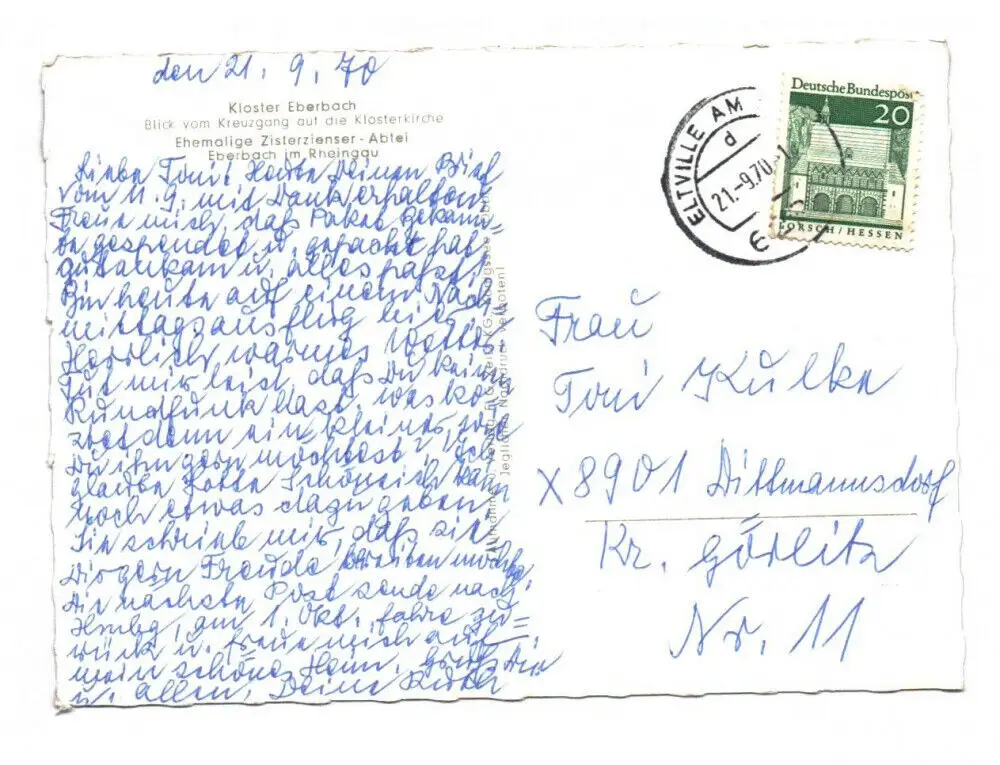 den 21. 9. 70
Kloster Eberbach
Blick vom Kreuzgang auf die Klosterkirche
Ehemalige Zisterzienser-Abtei
Eberbach im Rheingau
Liebe Toni! Habe Deinen Brief
vom 11.9. mit Dank erhalten
Freue mich, daß Paket
gut ankam u. alles paßt.
Bin heute auf einem Nach=
mittagsausflug hier.
Herrlich warmes Wetter.
Tut mir leid, daß Du keinen
Rundfunk hast, was ko=
stet denn ein kleines, wie
Du ihn gern möchtest? Ich
glaube Lotte Schöneich kann
noch etwas dazu geben
Sie schrieb mir, daß sie
Dir gern Freude bereiten möchte.
Die nächste Post sende nach
Hmbg, am 1. Okt. fahre zu=
rück u. freue mich auf
mein schönes Heim. Grüße Dir
u. allen, Deine Ruth
Jeglicher Nachdruck verboten!
ELTVILLE AM
d
21.-9.70.-1
Deutsche Bundespost
20
LORSCH/HESSEN
Frau
Toni Kulke
X8901 Dittmannsdorf
Kr. Görlitz
Nr. 11